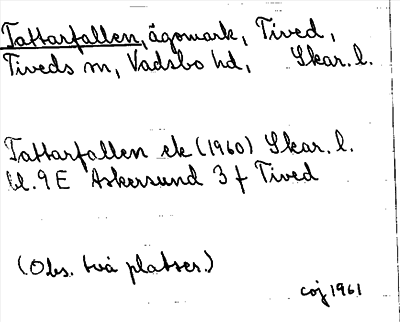 Tattarfallen, ägomark, Tived,
Tiveds sn, Vadsbo hd, Skar. l.
Tattarfallen ek (1960) Skar. l.
bl. 9 E Askersund 3 f Tived
(Obs. två platser.)
coj 1961